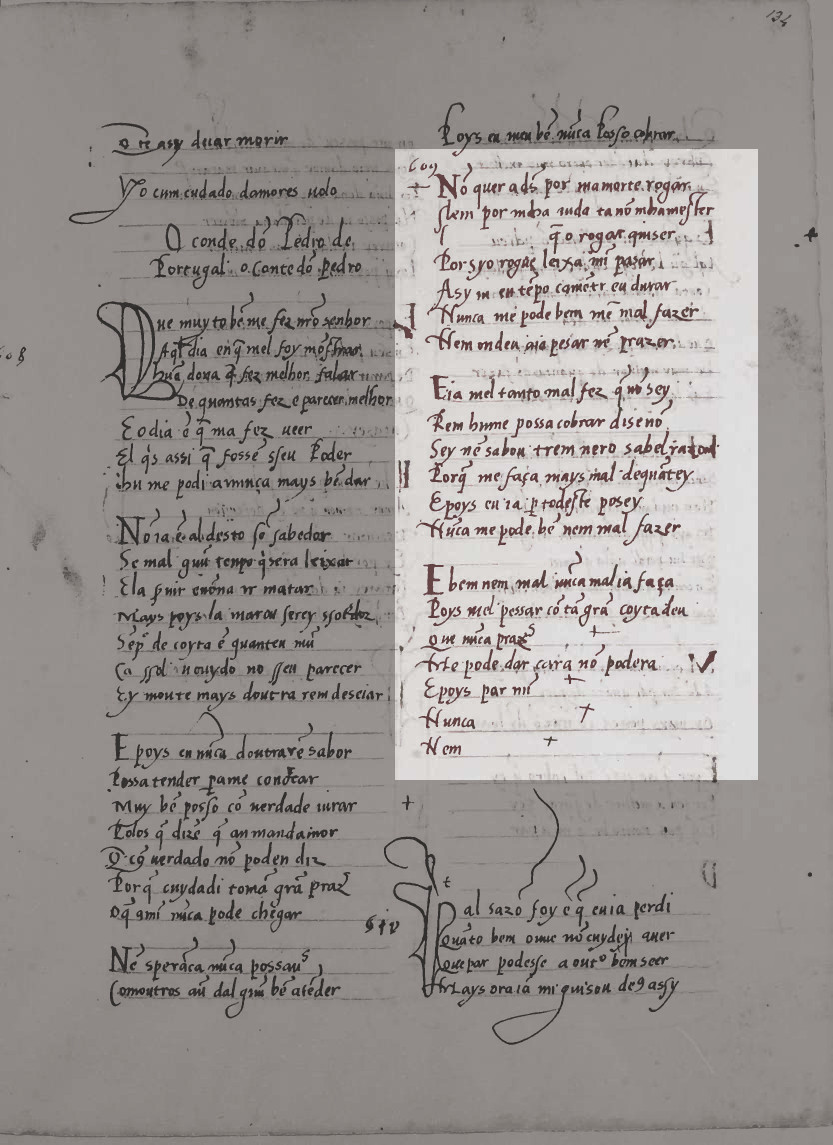 134
o te asy deuar morir
Uyo cum cudado damores uolo
O conde dõ Pedro de
Portugal. o Conte dõ pedro
Que muyto bẽ me fez nr̃o senhor
dia en q̃ mel foy mostrar
hũa dona q̃ fez melhor falar
De quantas fez e parecer melhor
E o dia ẽ q̃ ma fez ueer
El qĩs assi q̃ fosse sseu Poder
hu me podia nunca mays bẽ dar
Nõ ia ẽ al desto sõ sabedor
Se mal guũ tenpo qĩsera leixar
Ela
Mays poys la
de coyta ẽ quanteu
Ca ssol nouydo no sseu parecer
Ey moute mays doutra rem deseiar
E poys eu nũca doutra rẽ sabor
Possa tender
Muy bẽ posso cõ uerdade iurar
Polos q̃ dizẽ q̃ an mandamor
uerdado nõ poden diz
Por q̃ cuydadi tomã grã praz
Oq̃ amĩ nũca pode chegar
Nẽ sperãca nũca possau
Comoutros aũ dal guũ bẽ atẽder
Poys eu meu bẽ nũca Posso cobrar
609
Nõ quer a ds̃ por mamorte rogar
Nem por mha uida ta nõ mha mester
q̃ o rogar quiser
Por syo rogue leixa mĩ pasar
Asy m eu tẽpo camẽtr eu durar
Nunca me pode bem mẽ mal fazer
Nem ondeu aia pesar nẽ prazer
E ia mel tanto mal fez q̃ nõ sey
Rem hu me possa cobrar
Sey nẽ sabou trem nero sabel
Porq̃ me faça mays mal dequãtey
E poys eu ia p todeste posey
Nũca me pode bẽ nem mal fazer
E bem nem mal nũca ma ia faça
Poys mel pessar cõ tã grã coyta deu
Que nũca praz
pode dar cara nõ podera
E poys par mĩ
Nunca
Nem
610
Tal sazõ foy ẽ q̃ eu ia perdi
Quãto bem ouue nõ cuydey auer
Que par podesse a outo bem seer
Mays ora iá mi guisou de9 assy